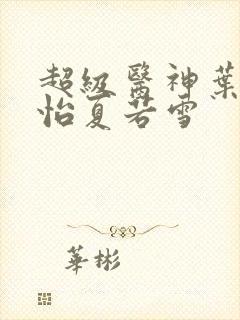 超級醫神葉
怡夏若雪
華彬